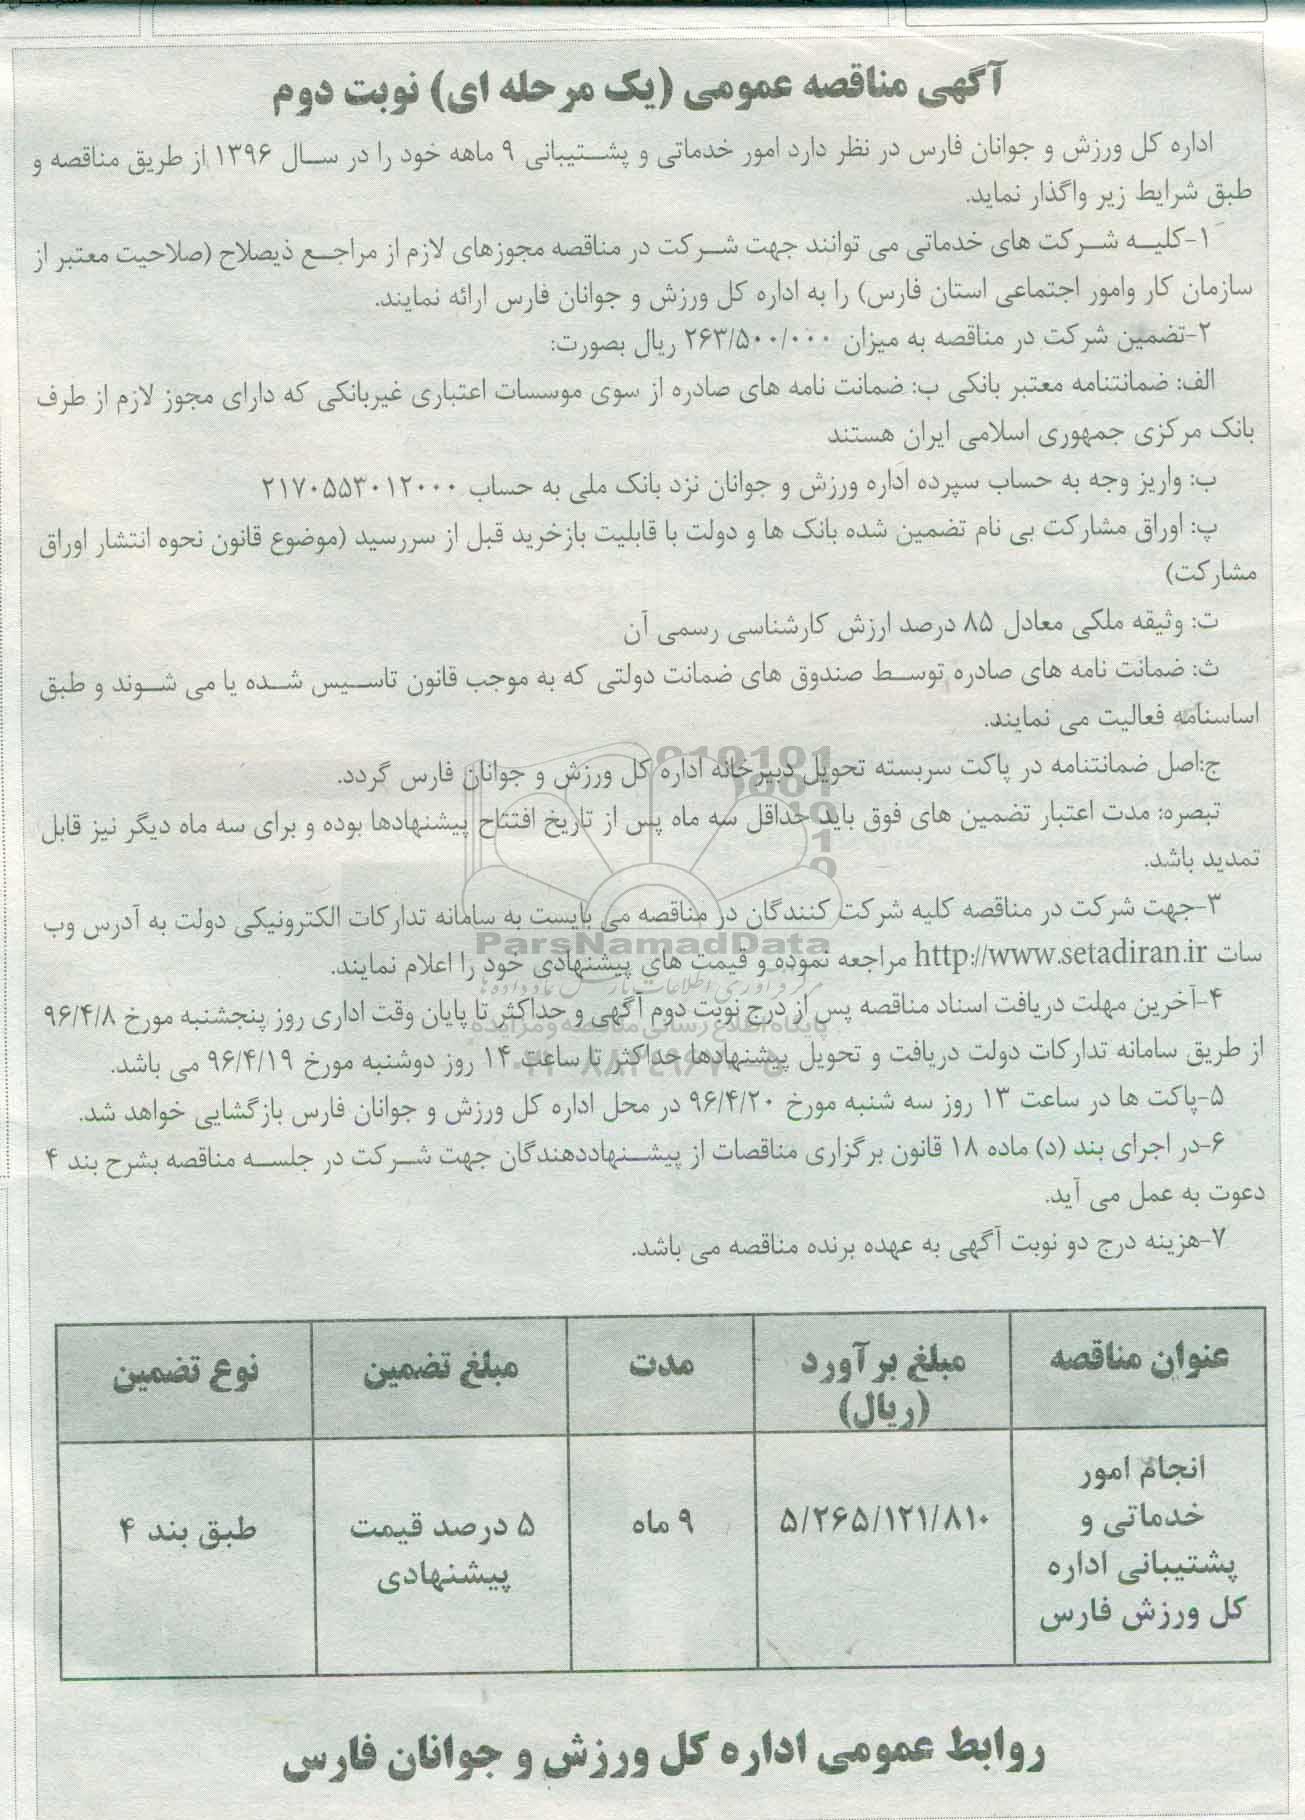 آگهی مناقصه عمومی (یک مرحله ای) نوبت دوم
اداره کل ورزش و جوانان فارس در نظر دارد امور خدماتی و پشتیبانی ۹ ماهه خود را در سال ۱۳۹۶ از طریق مناقصه و
طبق شرایط زیر واگذار نماید.
۱-کلیه شرکت های خدماتی می توانند جهت شرکت در مناقصه مجوزهای لازم از مراجع ذیصلاح (صلاحیت معتبر از
سازمان کار وامور اجتماعی استان فارس) را به اداره کل ورزش و جوانان فارس ارائه نمایند.
۲-تضمین شرکت در مناقصه به میزان ۲۶۳/۵۰۰/۰۰۰ ریال بصورت:
الف: ضمانتنامه معتبر بانکی ب: ضمانت نامه های صادره از سوی موسسات اعتباری غیربانکی که دارای مجوز لازم از طرف
بانک مرکزی جمهوری اسلامی ایران هستند
ب: واریز وجه به حساب سپرده اداره ورزش و جوانان نزد بانک ملی به حساب ۲۱۷۰۵۵۳۰۱۲۰۰۰
پ: اوراق مشارکت بی نام تضمین شده بانک ها و دولت با قابلیت بازخرید قبل از سررسید (موضوع قانون نحوه انتشار اوراق
مشارکت)
ت: وثیقه ملکی معادل ۸۵ درصد ارزش کارشناسی رسمی آن
ث: ضمانت نامه های صادره توسط صندوق های ضمانت دولتی که به موجب قانون تاسیس شده یا می شوند و طبق
اساسنامه فعالیت می نمایند.
ج:اصل ضمانتنامه در پاکت سربسته تحویل دبیرخانه اداره کل ورزش و جوانان فارس گردد.
تبصره: مدت اعتبار تضمین های فوق باید حداقل سه ماه پس از تاریخ افتتاح پیشنهادها بوده و برای سه ماه دیگر نیز قابل
تمدید باشد.
۳-جهت شرکت در مناقصه کلیه شرکت کنندگان در مناقصه می بایست به سامانه تدارکات الکترونیکی دولت به آدرس وب
سات http://www.setadiran.ir مراجعه نموده و قیمت های پیشنهادی خود را اعلام نمایند.
ParsNamadData
۴-آخرین مهلت دریافت اسناد مناقصه پس از درج نوبت دوم آگهی و حداکثر تا پایان وقت اداری روز پنجشنبه مورخ ۹۶/۴/۸
پایگاه اطلاع رسانی مناقصه و مزایده
از طریق سامانه تدارکات دولت دریافت و تحویل پیشنهادها حداکثر تا ساعت ۱۴ روز دوشنبه مورخ ۹۶/۴/۱۹ می باشد.
۵-پاکت ها در ساعت ۱۳ روز سه شنبه مورخ ۹۶/۴/۲۰ در محل اداره کل ورزش و جوانان فارس بازگشایی خواهد شد.
۶-در اجرای بند (د) ماده ۱۸ قانون برگزاری مناقصات از پیشنهاددهندگان جهت شرکت در جلسه مناقصه بشرح بند ۴
دعوت به عمل می آید.
۷-هزینه درج دو نوبت آگهی به عهده برنده مناقصه می باشد.
عنوان مناقصه مبلغ برآورد (ریال) مدت مبلغ تضمین نوع تضمین
انجام امور خدماتی و پشتیبانی اداره کل ورزش فارس ۵/۲۶۵/۱۲۱/۸۱۰ ۹ ماه ۵ درصد قیمت پیشنهادی طبق بند ۴
روابط عمومی اداره کل ورزش و جوانان فارس